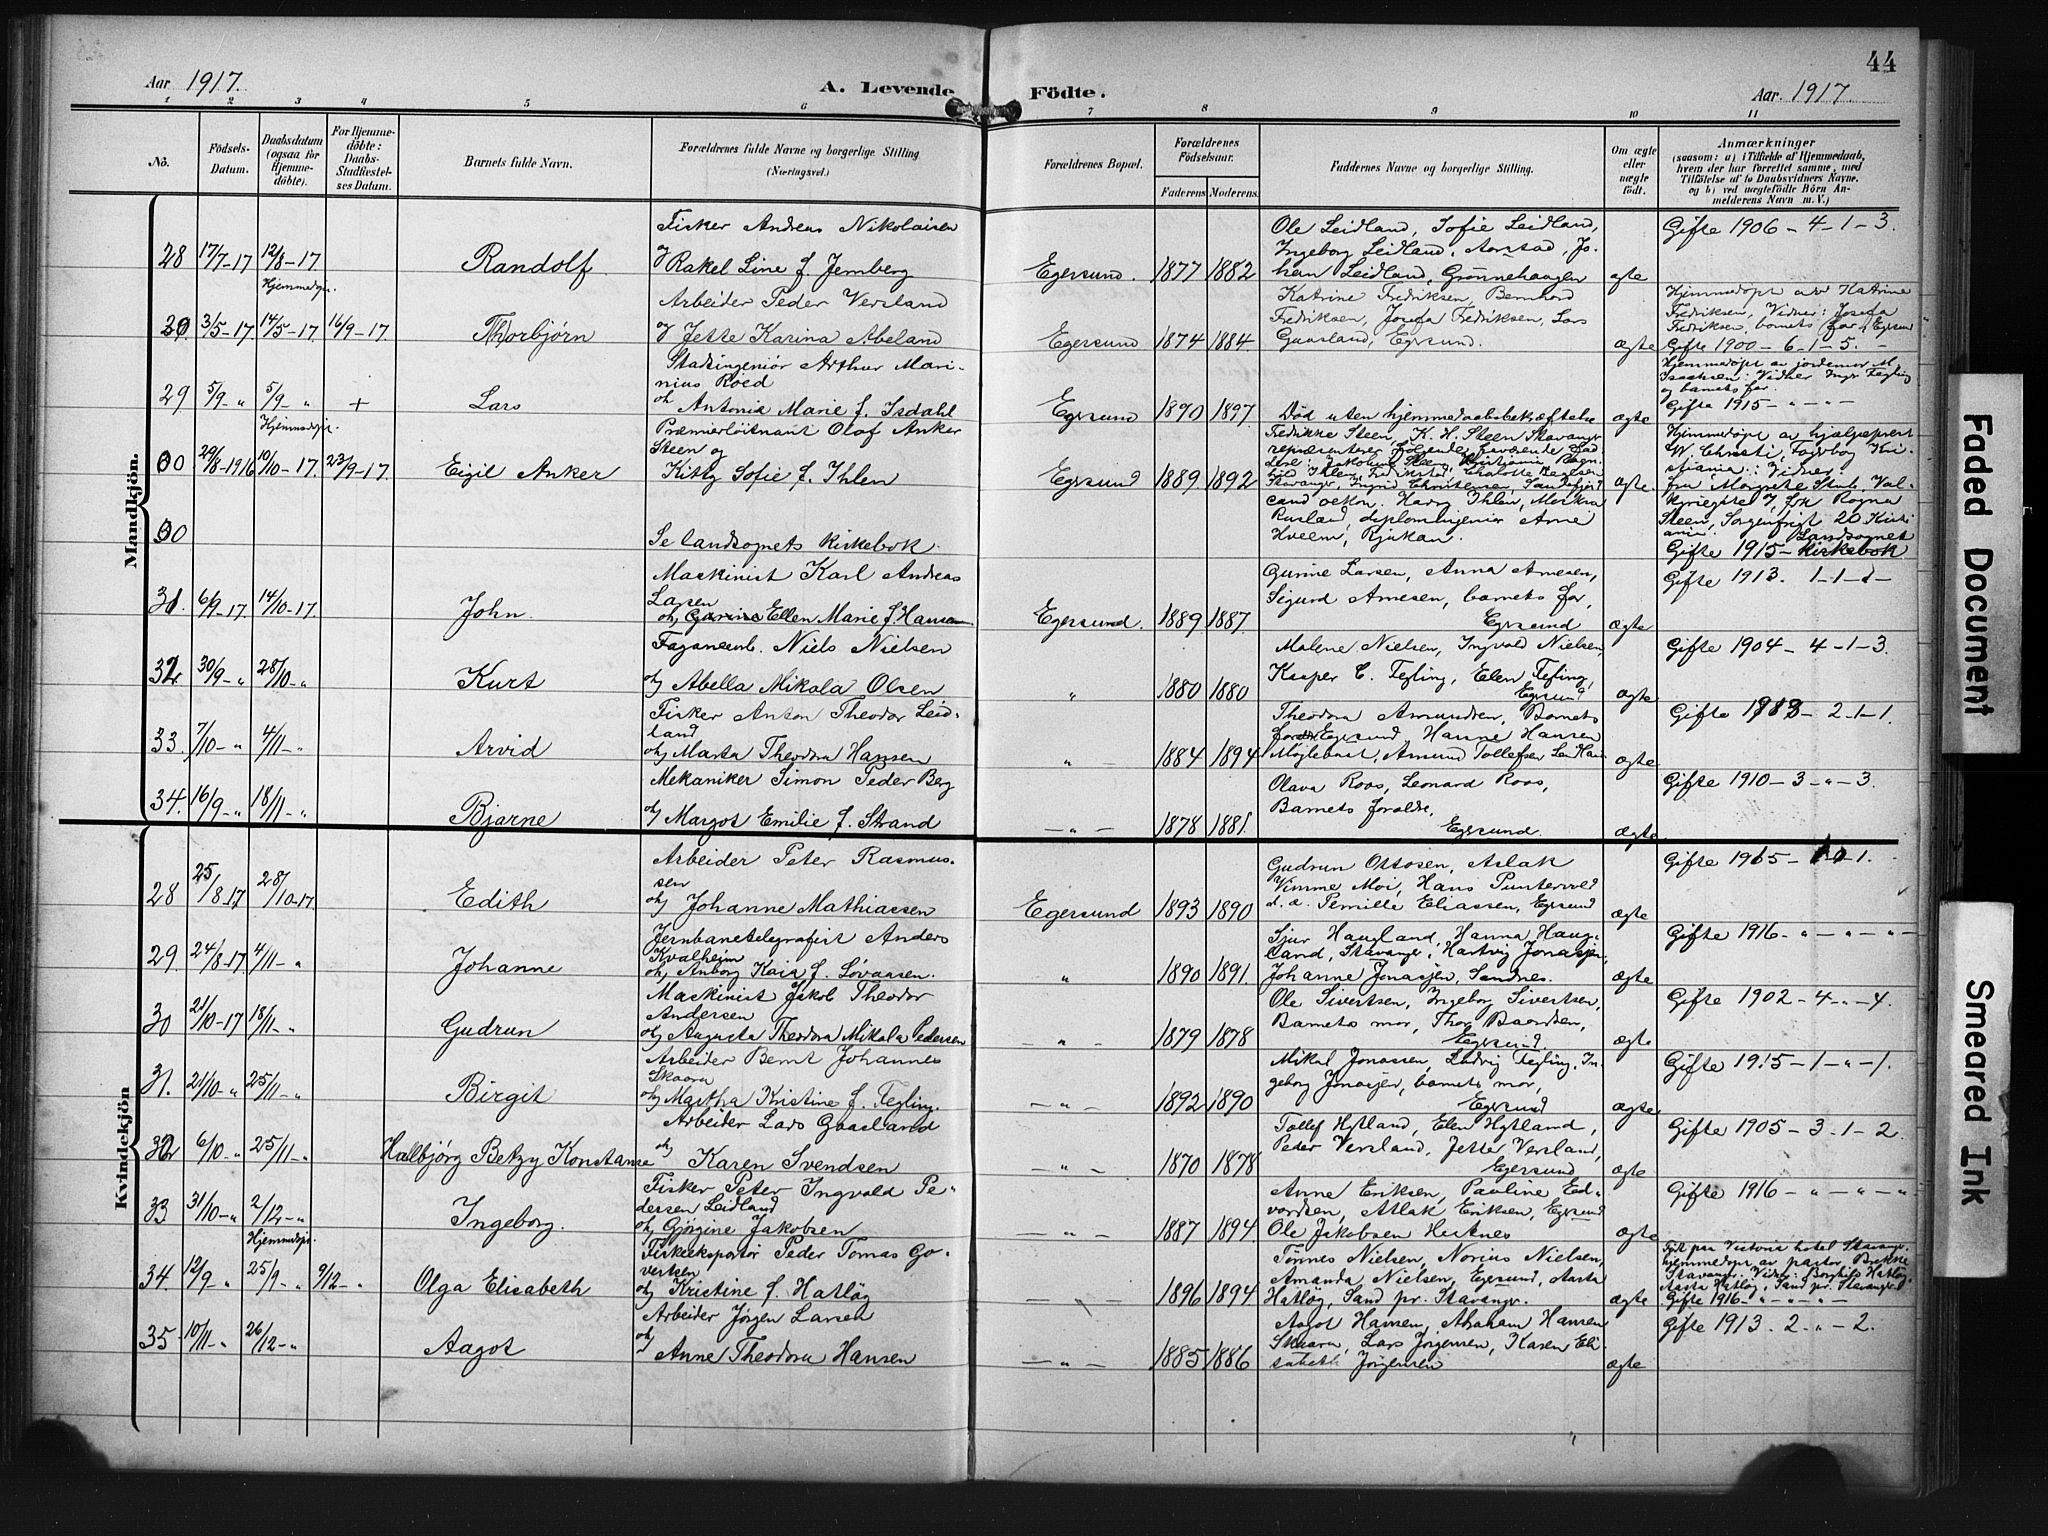 44
Aar 1917.
A. Levende Födte.
Aar 1917
1 2 3 4 5 6 7 8 9 10 11
No.
Födsels-Datum.
Daabsdatum (ogsaa for Hjemme-döbte).
For Hjemme-döbte: Daabs-Stadfæstel-ses Datum.
Barnets fulde Navn.
Forældrenes fulde Navne og borgerlige Stilling (Næringsvei.)
Forældrenes Bopæl.
Forældrenes Födselsaar.
Faderens. Moderens.
Faddernes Navne og borgerlige Stilling.
Om ægte eller uægte födt.
Anmærkninger
(saasom: a) i Tilfælde af Hjemmedaab, hvem der har forrettet samme, med Tilföielse af to Daabsvidners Navne, og b) ved uægtefödte Börn An-melderens Navn m. V.)
Mandkjön.
28 17/7-17 12/8-17. Randolf.
Fisker Andreas Nikolaisen
og Rakel Line f. Jernberg
Egersund. 1877 1882
Ole Leidland, Sofie Leidland,
Ingeborg Leidland, Aarstad, Jo-
han Leidland, Grönnehaugen
ægte
Gifte 1906 - 4 - 1 - 3.
Hjemmedøpt.
3/5-17 14/5-17 16/9-17 Thorbjörn
Arbeider Peder Versland
og Jette Karina Abeland
Egersund 1874 1884.
Katrine Fredriksen, Bernhard
Fredriksen, Josefa Fredriksen, Lars
Gaasland, Egersund.
ægte
Hjemmedøpt av Katrine
Fredriksen, Vidner: Josefa
Fredriksen, barnets far, Egersund
Gifte 1900 - 6 - 1 - 5.
29 5/9 - " 5/9 - " + Lars
Stadsingeniör Arthur Mari-
nius Roed
og Antonia Marie f. Isdahl
Egersund 1890 1897.
Død uten hjemmedaabsbekræftelse
ægte
Hjemmedøpt av jordemor M
Isachsen: Vidner Ingr. Fegling
og barnets far.
Gifte 1915 - " - " - "
Hjemmedøpt.
30 29/8-1916 10/10-17. 23/9-17. Eigil Anker
Premierløitnant Olaf Anker
Steen og
Kitty Sofie f. Ihlen
Egersund 1889. 1892
Fredrikke Steen, K. H. Steen Stavanger
cand oecon. Harry Ihlen,
Rusland, diplomingeniör Arne
Hveem, Rjukan.
ægte.
Hjemmedøpt av hjælpeprest
W. Christie, Fagerborg Kri-
stiania: Vidner:
fru Margrete Skub, Val-
kyriegate 7, frk Ragna
Steen, Sorgenfrigt 20 Kristi
ania.
Gifte 1915 -
30
Se landsognets kirkebok.
Landsognets
kirkebok
31. 6/9-17. 14/10-17. John.
Maskinist Karl Andreas
Larsen
og Ellen Marie f. Hansen
Egersund. 1889 1887.
Gurine Larsen, Anna Arnesen,
Sigurd Arnesen, barnets far,
Egersund
ægte
Gifte 1913. 1 - 1 -
32. 30/9 - " 28/10 - " Kurt
Niels Nielsen
og Abella Mikala Olsen
" 1880 1880
Malene Nielsen, Ingvald Nielsen,
Kasper C. Fegling, Elen Fegling,
Egersund
ægte
Gifte 1904 - 4 - 1 - 3.
33. 7/10 - " 4/11 - " Arvid
Fisker Anton Theodor Leid-
land
og Marta Theodora Hansen
" 1884 1894
Theodora Amundsen, Barnets
Egersund, Hanne Hansen
Amund Tollefsen
ægte
Gifte 2 - 1 - 1.
34. 16/9 - " 18/11 - " Bjarne
Mekaniker Simon Peder Berg
og Margot Emilie f. Strand
- " - 1878 1881.
Olava Roos, Leonard Roos,
Barnets forældre,
Egersund.
ægte
Gifte 1910 - 3 - " - 3.
Kvindekjön
28 25/8-17 28/10-17. Edith
Arbeider Peter Rasmus-
sen
og Johanne Mathiassen
Egersund 1893 1890
Gudrun Ottosen, Aslak
Vimme Moi, Hans Puntervold
d. a. Pernille Eliassen, Egersund
ægte
Gifte 1915 - 1.
29. 24/8-17 4/11 - " Johanne
Jernbanetelegrafist Anders
Kvalheim
og Anborg Kaia f. Lövaasen.
" 1890 1891.
Sjur Haugland, Hanna Haug-
land, Stavanger, Hartvig Jonassen,
Johanne Jonassen, Sandnes.
ægte
Gifte 1916 - " - " - " -
30 21/10-17 18/11 - " Gudrun
Maskinist Jakob Theodor
Andersen
og Augusta Theodora Mikala Pedersen
- " - 1879 1878
Ole Sivertsen, Ingeborg Sivertsen,
Barnets mor, Thor Baardsen,
Egersund.
ægte
Gifte 1902 - 4 - " - 4.
31. 21/10 - " 25/11 - " Birgit
Arbeider Bernt Johannes
Skaara
og Martha Kristine f. Fegling.
- " - 1892 1890
Mikal Jonassen, Ludvig Fegling, In-
geborg Jonassen, barnets mor,
Egersund
ægte
Gifte 1915 - 1 - " - 1.
32 6/10 - " 25/11 - " Halbjörg Betzy Konstanse
Arbeider Lars Gaasland
og Karen Svendsen
- " - 1870 1878
Tollef Hytland, Elen Hytland,
Peder Versland, Jette Versland,
Egersund
ægte
Gifte 1905 - 3 - 1 - 2.
33 31/10 - " 2/12 - " Ingeborg.
Fisker Peter Ingvald Pe-
dersen Leidland
og Gjörgine Jakobsen
- " - 1887 1894
Anne Eriksen, Pauline Ed-
vardsen, Atlak Eriksen, Egersund
Ole Jakobsen Hestnes
ægte
Gifte 1916 - " - " - "
Hjemmedøpt.
34. 12/9 " 25/9 - " 9/12 - " Olga Elisabeth
Fiskeeksportör Peder Tomas Go-
vertsen
og Kristine f. Hatløy
- " - 1896 1894
Tönnes Nielsen, Norius Nielsen,
Amanda Nielsen, Egersund, Aasta
Hatløy, Sand pr. Stavanger.
ægte
Født paa Victoria hotel Stavanger.
hjemmedøpt av pastor
Stavanger. Vidner: Borghild Hatløy,
Aasta Hatløy, Sand pr. Stavanger
Gifte 1916 - " - " - " -
35 10/11 - " 26/12 - " Aagot
Arbeider Jörgen Larsen
og Anne Theodora Hansen
- " - 1885 1886
Aagot Hansen, Abraham Hansen
Skaara, Lars Jörgensen, Karen Eli-
sabeth Jörgensen
ægte
Gifte 1913. 2 - " - 2.
Faded Document
Smeared Ink